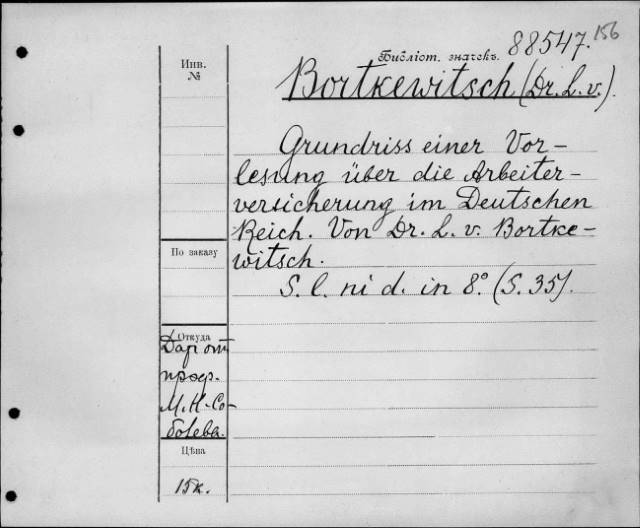 156
Библіот. значекъ. 88547.
Инв.
№
Bortkewitsch (Dr. L. v.).
Grundriss einer Vor-
lesung über die Arbeiter-
versicherung im Deutschen
Reich. Von Dr. L. v. Bortke-
witsch.
S. l. ni d. in 8º. (S. 35).
По заказу
Откуда
Дар от
проф.
М. Н. Со-
болева.
Цѣна
15к.